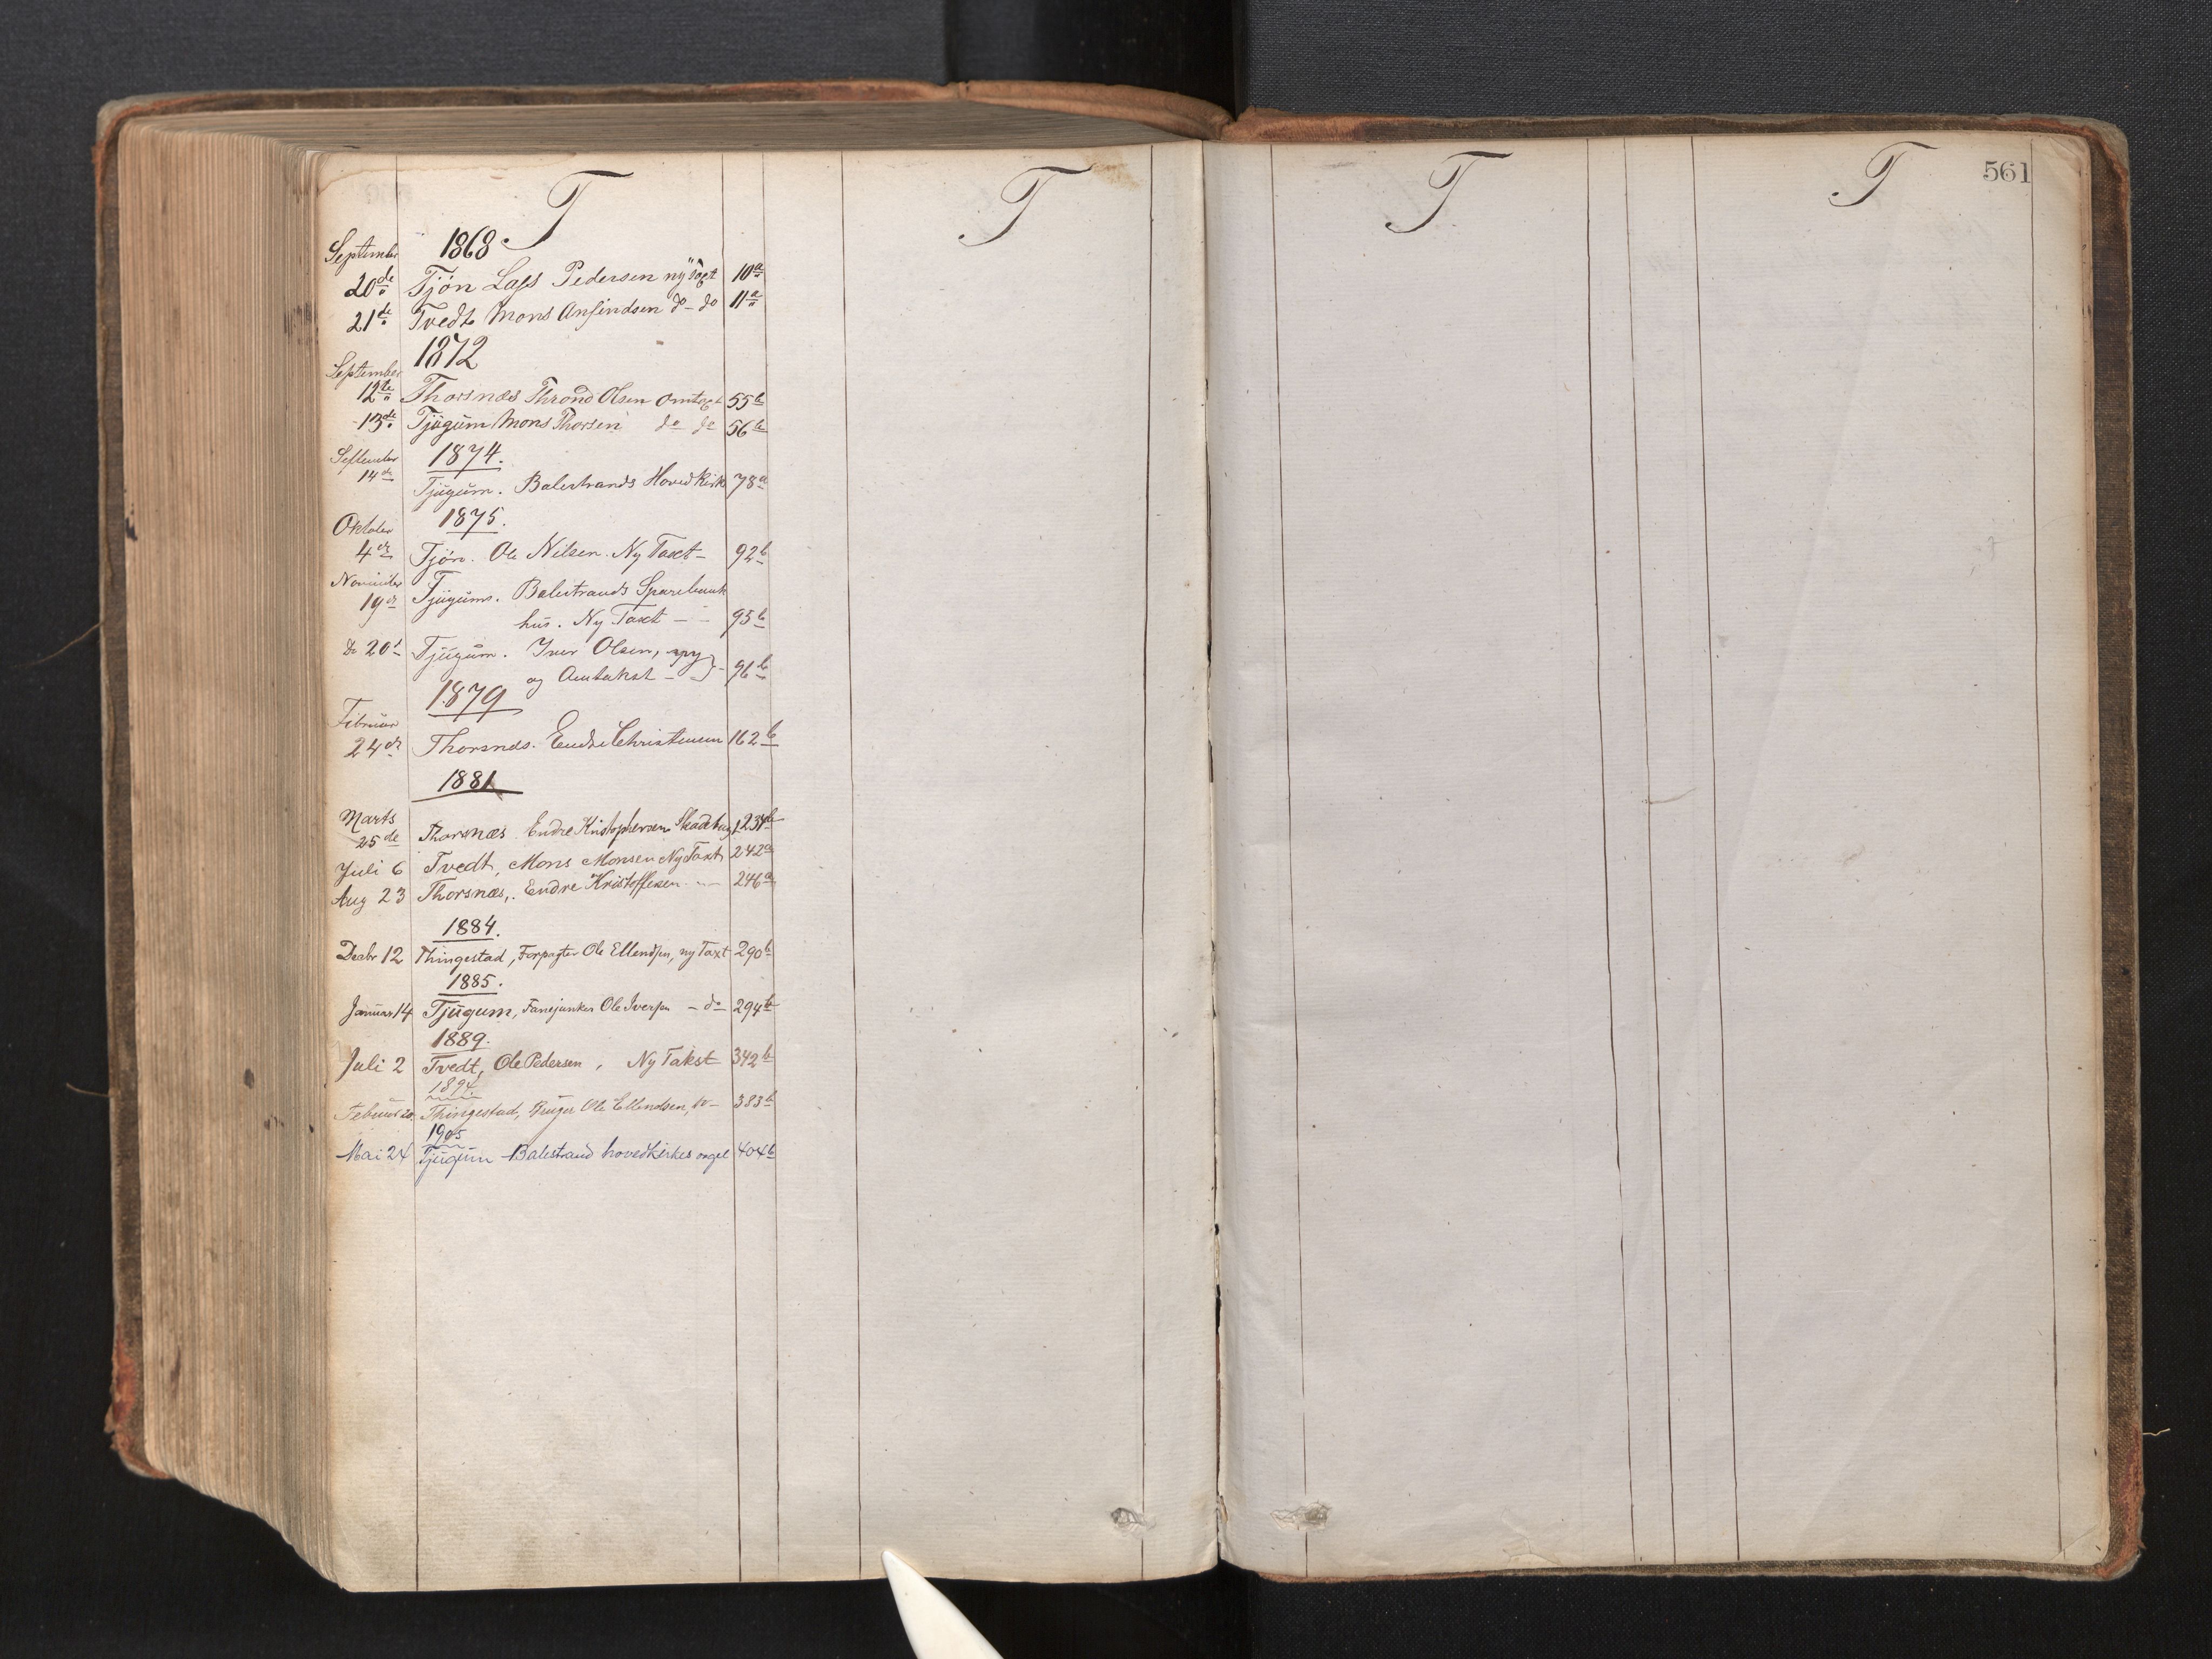 T
T
T
T
561
1868
September
20de Tjön Lass Pedersen ny Taxt 10a
21de Tvedt Mons Ansindsen do - do 11a
1872
September
12te Thorsnæs Thrond Olsen Omtaxt 55b
13de Tjugum Mons Thorsen do do 56b
September 1874.
14de Tjugum. Balestrands Hovedkirke 78a
Oktober 1875.
4de Tjön. Ole Nilsen. Ny Taxt - 92b
November
19de Tjugum. Balestrands Sparebank
hus. Ny Taxt - - 95b
do 20de Tjugum. Iver Olsen, ny
og Omtakst - 96b
1879
Februar
24de Thorsnæs. Endre Christensen 162b
1881
Marts
25de Thorsnæs Endre Kristophersen Skadetaxt 234b
Juli 6 Tvedt, Mons Monsen Ny Taxt 242a
Aug 23 Thorsnæs, Endre Kristoffersen - 246a
1884.
Decbr 12 Thingestad, Forpagter Ole Ellendsen, ny Taxt 290b
1885.
Januar 14 Tjugum, Fanejunker Ole Iversen - do 294b
1889.
Juli 2 Tvedt, Ole Pedersen, Ny Takst 342b
1894.
Februar 20 Thingestad, Bruger Ole Ellendsen, do - 383b
1905
Mai 24 Tjugum Balestrand hovedkirkes orgel 404b